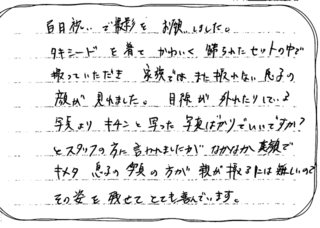 百日祝いで撮影をお願いしました。
タキシードを着てかわいく飾られたセットの中で
撮っていただき 家族ではまだ撮れない息子の
顔が見れました。目線が外れたりしている
写真よりキチンと写った写真ばかりでいいですか?
とスタッフの方に言われましたがなかなか真顔で
キメタ 息子の写真の方が 我が撮るには難しいので
その姿を残せてとても喜んでいます。